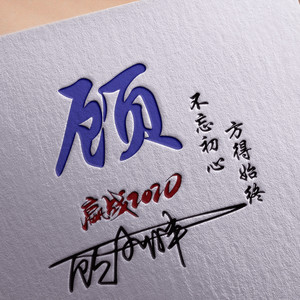 顾
不忘初心
方得始终
赢战2020